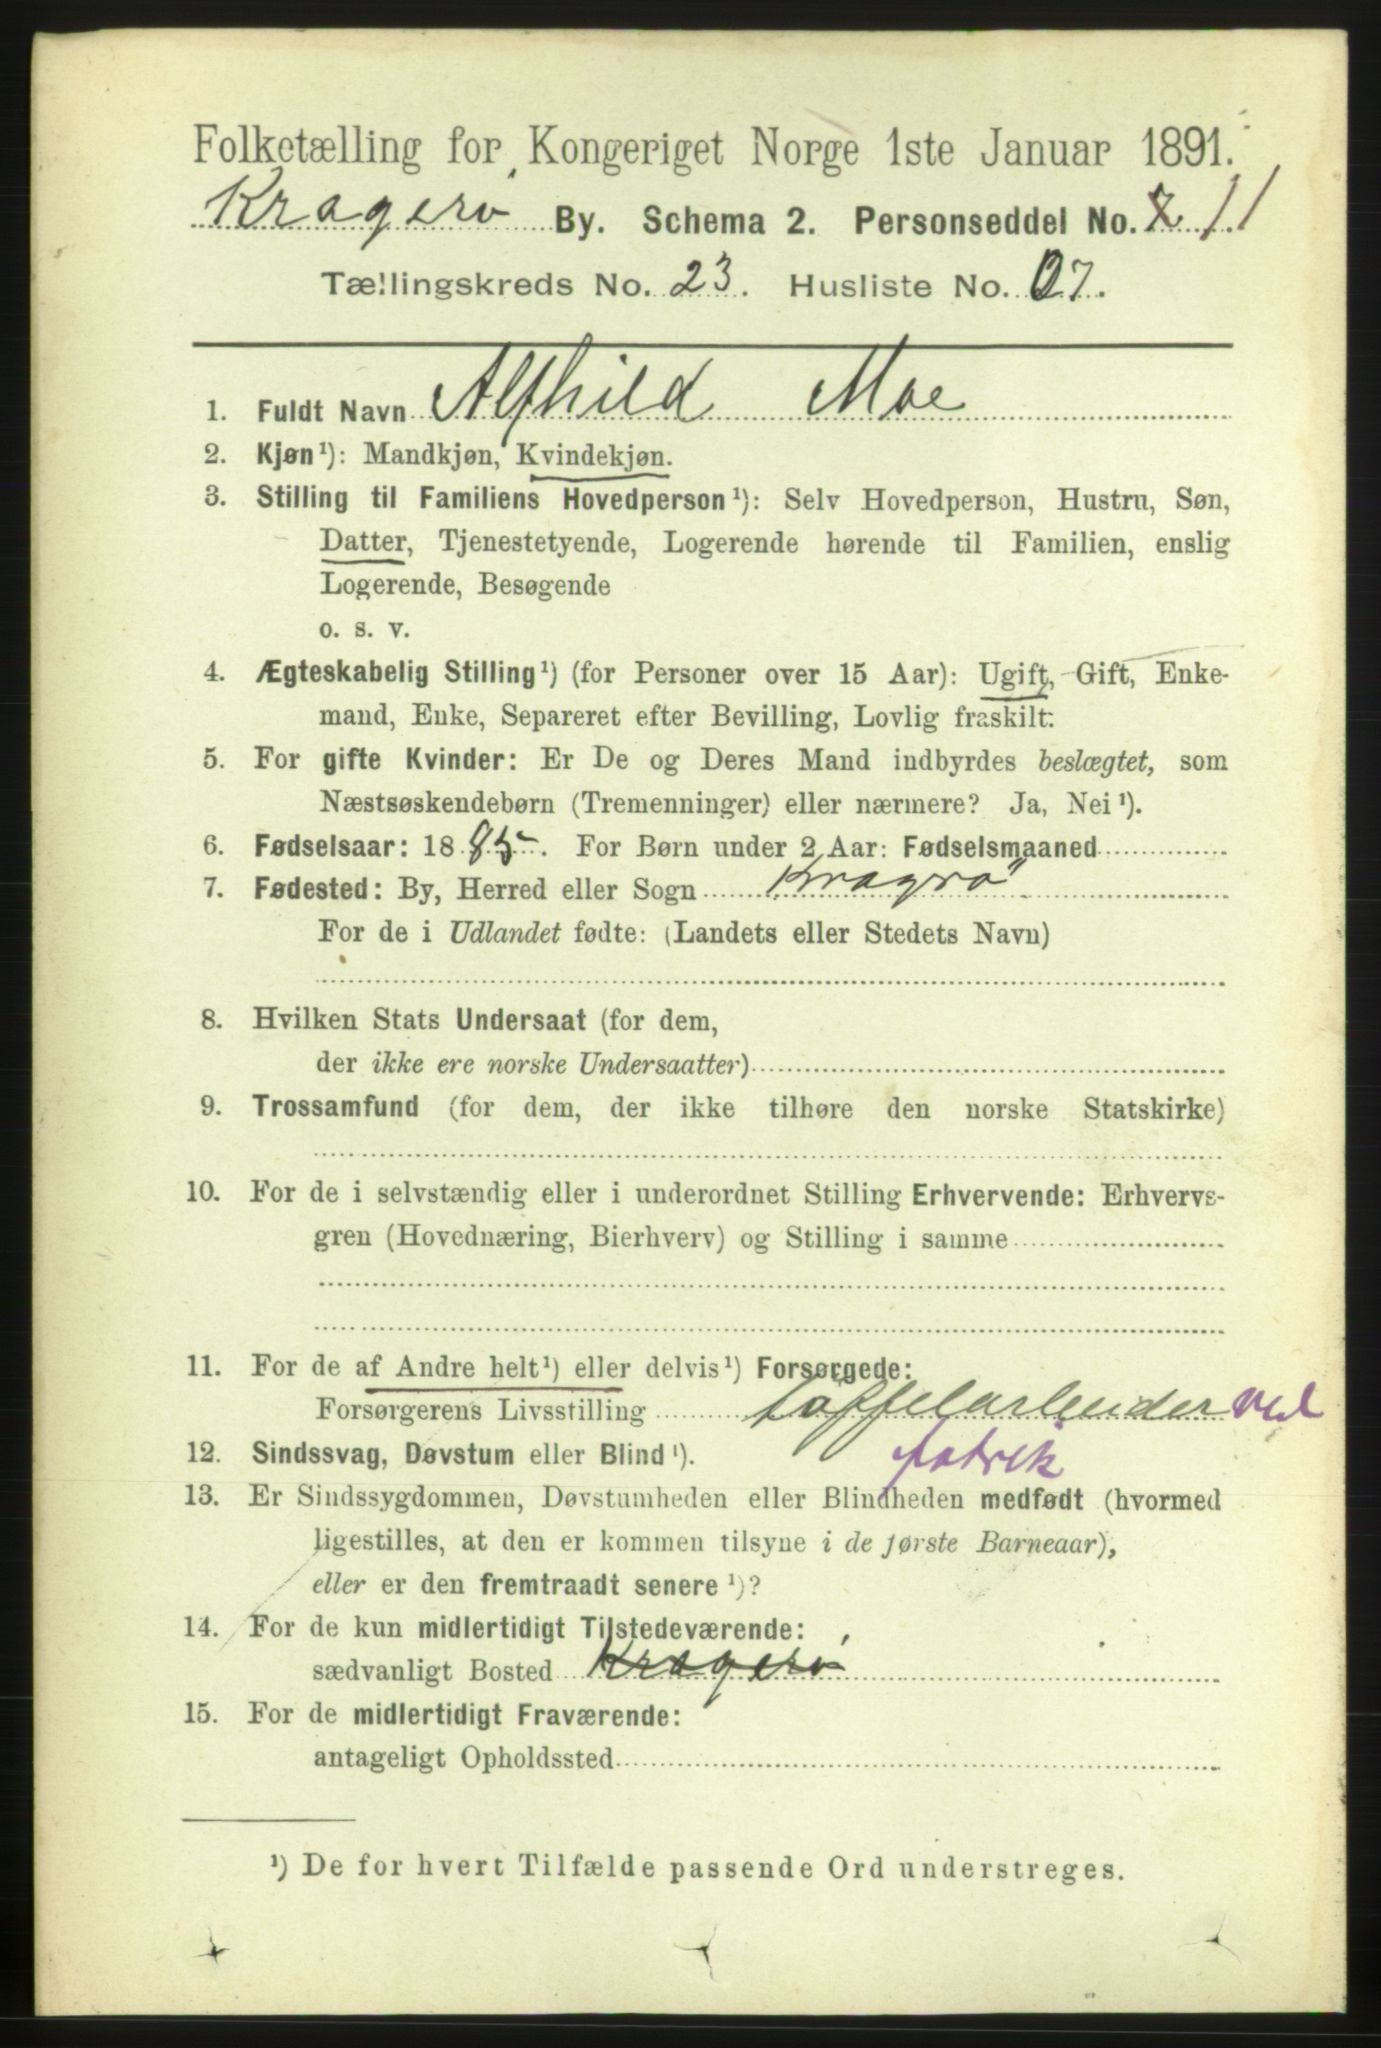 Folketælling for Kongeriget Norge 1ste Januar 1891.
Kragerø By. Schema 2. Personseddel No. 11
Tællingskreds No. 23. Husliste No. 07.
1. Fuldt Navn Alfhild Moe
2. Kjøn¹): Mandkjøn, Kvindekjøn.
3. Stilling til Familiens Hovedperson¹): Selv Hovedperson, Hustru, Søn,
Datter, Tjenestetyende, Logerende hørende til Familien, enslig
Logerende, Besøgende
o. s. v.
4. Ægteskabelig Stilling¹) (for Personer over 15 Aar): Ugift, Gift, Enke-
mand, Enke, Separeret efter Bevilling, Lovlig fraskilt.
5. For gifte Kvinder: Er De og Deres Mand indbyrdes beslægtet, som
Næstsøskendebørn (Tremenninger) eller nærmere? Ja, Nei¹).
6. Fødselsaar: 1885. For Børn under 2 Aar: Fødselsmaaned
7. Fødested: By, Herred eller Sogn Kragrø
For de i Udlandet fødte: (Landets eller Stedets Navn)
8. Hvilken Stats Undersaat (for dem,
der ikke ere norske Undersaatter)
9. Trossamfund (for dem, der ikke tilhøre den norske Statskirke)
10. For de i selvstændig eller i underordnet Stilling Erhvervende: Erhvervs-
gren (Hovednæring, Bierhverv) og Stilling i samme
11. For de af Andre helt¹) eller delvis¹) Forsørgede:
Forsørgerens Livsstilling ved
12. Sindssvag, Døvstum eller Blind¹). fabrik
13. Er Sindssygdommen, Døvstumheden eller Blindheden medfødt (hvormed
ligestilles, at den er kommen tilsyne i de første Barneaar),
eller er den fremtraadt senere¹)?
14. For de kun midlertidigt Tilstedeværende:
sædvanligt Bosted Kragerø
15. For de midlertidigt Fraværende:
antageligt Opholdssted
¹) De for hvert Tilfælde passende Ord understreges.